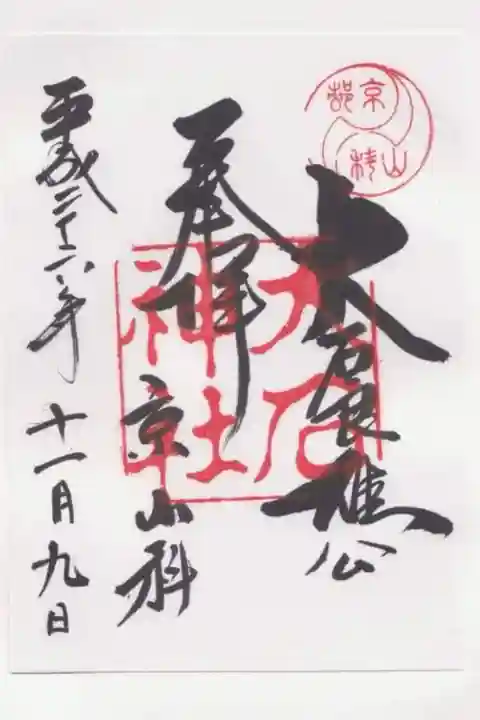 京都
山科
大石良雄公
大石
神社
奉拝
京山科
平成二十六年 十一月九日